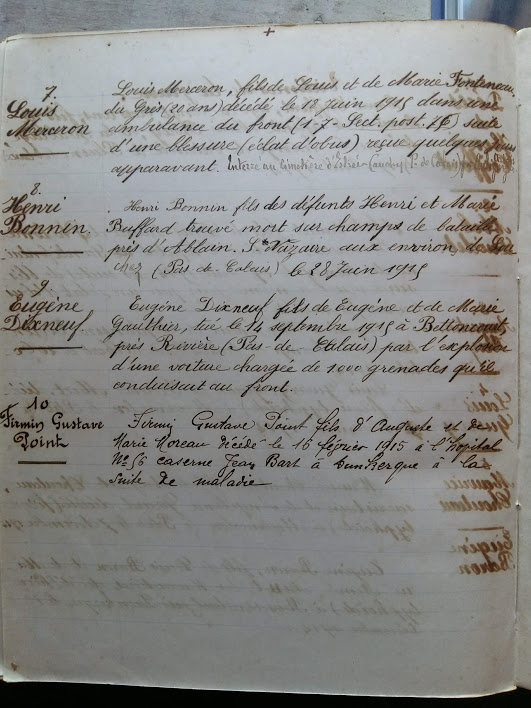 +
7.
Louis
Merceron
Louis Merceron, fils de Louis et de Marie Fonteneau,
du Gris (20 ans) décédé le 18 juin 1915 dans une
ambulance du front (1-7- Sect. post. 76) suite
d'une blessure (éclat d'obus) reçue quelques jours
apparavant. Interré au cimetière d'Estrée-Cauchy
8.
Henri
Bonnin.
Henri Bonnin fils des défunts Henri et Marie
Buffard trouvé mort sur champs de bataille
près d'Ablain. St Nazaire aux environs de Sou
chez (Pas de Calais) le 28 Juin 1915
9
Eugène
Dixneuf
Eugène Dixneuf fils de Eugène et de Marie
Gauthier, tué le 14 septembre 1915 à
près Rivière (Pas-de-Calais) par l'explosion
d'une voiture chargée de 1000 grenades qu'il
conduisait au front.
10
Firmin Gustave
Point
Firmin Gustave Point fils d'Auguste et de
Marie Moreau décédé le 16 février 1915 à l'Hopital
No 56 caserne Jean Bart à Dunkerque à la
suite de maladie